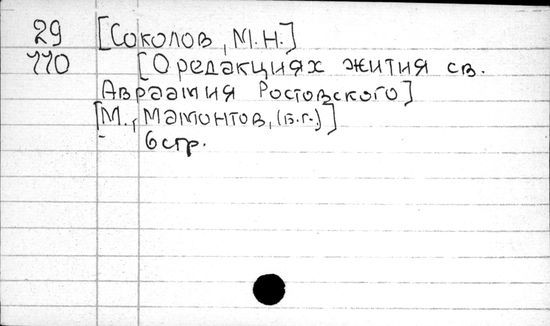 29 [Соколов, М.Н.]
110 [О редакциях жития св.
Авраамия Ростовского]
[М., Мамонтов, (б.г.)]
6 стр.